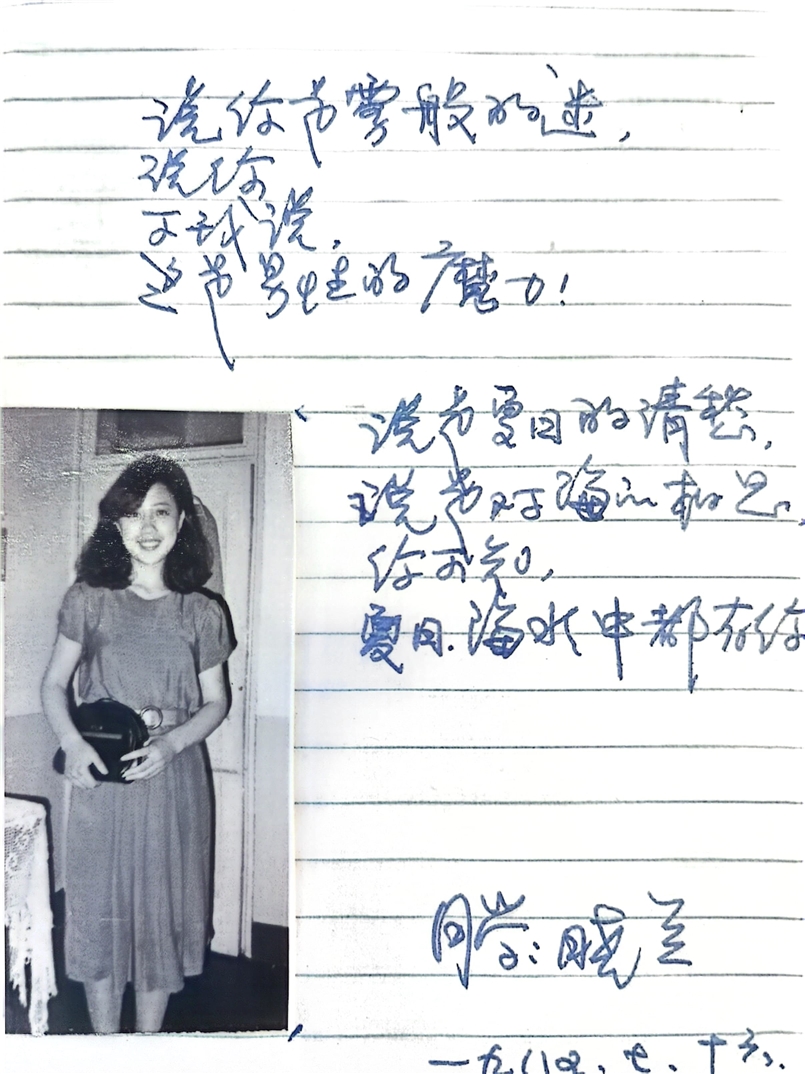 说你带雾般的迷，
说你
不我说，
还带男性的魔力！
说带夏日的清愁，
说带对海的相思，
你可知，
夏日、海水中都有你
同学：晓兰
一九八四、七、十六、